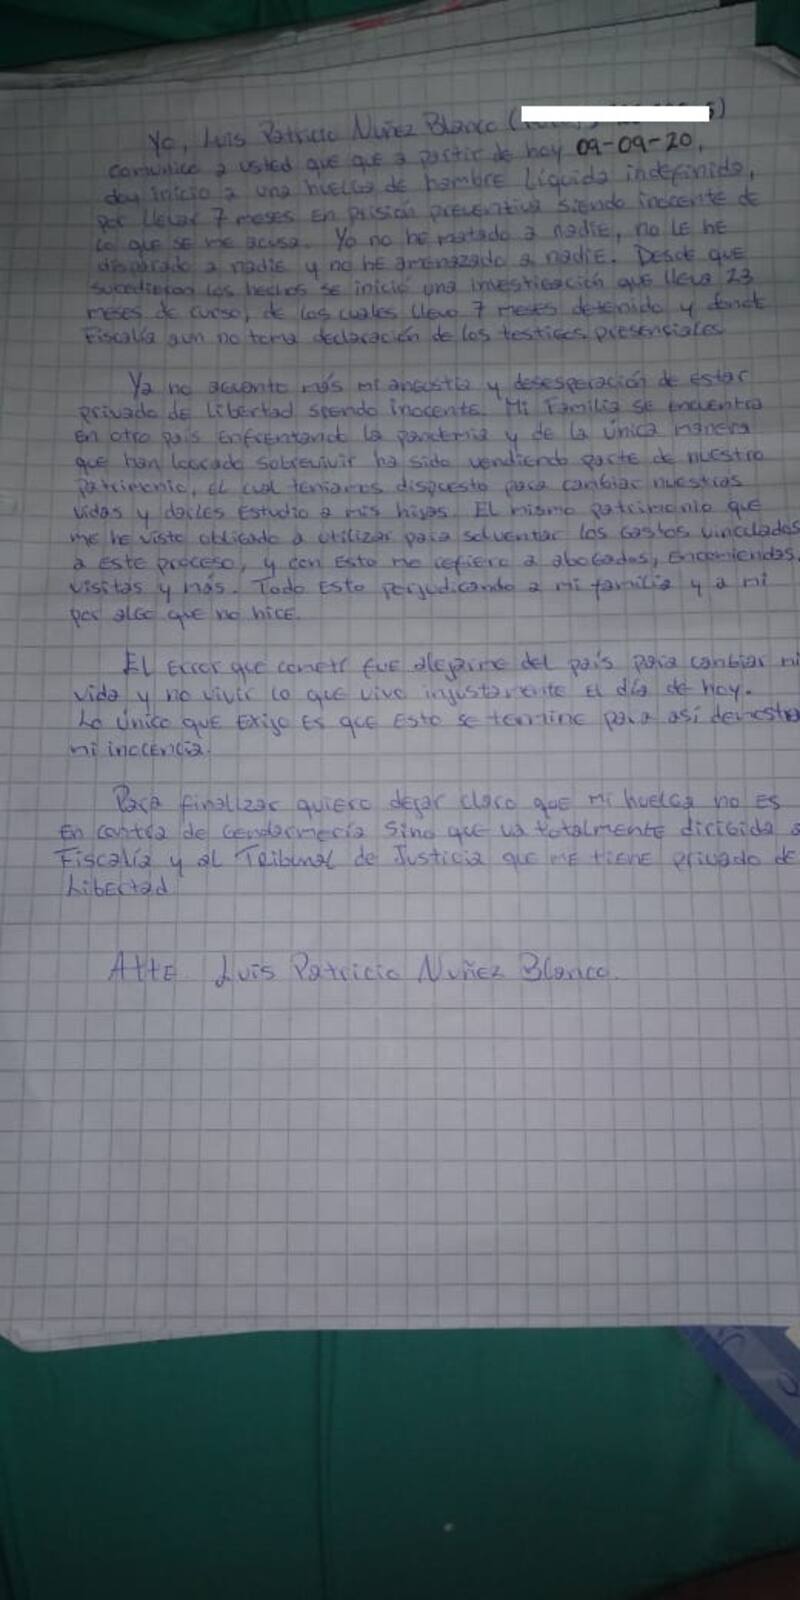 Yo, Luis Patricio Nuñez Blanco (
comunico a usted que que a partir de hoy 09-09-20,
doy inicio a una huelga de hambre líquida indefinida,
por llevar 7 meses en prisión preventiva siendo inocente de
lo que se me acusa. Yo no he matado a nadie, no le he
disparado a nadie y no he amenazado a nadie. Desde que
sucedieron los hechos se inició una investigación que lleva 23
meses de curso, de los cuales llevo 7 meses detenido y donde
Fiscalía aun no toma declaración de los testigos presenciales
Ya no aguanto más mi angustia y desesperación de estar
privado de libertad siendo inocente. Mi Familia se encuentra
en otro país enfrentando la pandemia y de la única manera
que han logrado sobrevivir ha sido vendiendo parte de nuestro
patrimonio, el cual teniamos dispuesto para cambiar nuestras
vidas y darles estudio a mis hijas. El mismo patrimonio que
me he visto obligado a utilizar para solventar los gastos vinculados
a este proceso, y con esto me refiero a abogados, encomiendas,
visitas y más. Todo esto perjudicando a mi familia y a mi
por algo que no hice.
El error que cometí fue alejarme del país para cambiar mi
vida y no vivir lo que vivo injustamente el día de hoy.
Lo único que exijo es que esto se termine para así demostra
mi inocencia.
Para finalizar quiero dejar claro que mi huelga no es
en contra de Gendarmería sino que va totalmente dirigida a
Fiscalía y al Tribunal de Justicia que me tiene privado de
Libertad
Atte Luis Patricio Nuñez Blanco.